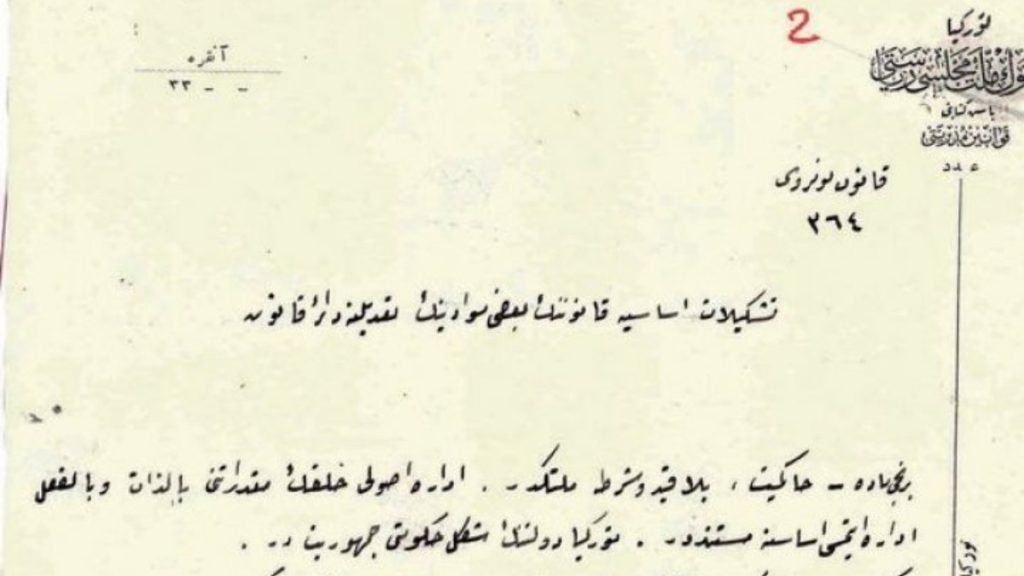 2
توركيا
بيوك ملت مجلسى رياستى
باش كتابتى
قوانين مديريتى
عدد
آنقره
٣٣ - -
قانون نومروسى
٣٦٤
تشكيلات اساسيه قانوننك بعضى موادينك تعديلنه دائر قانون
برنجى ماده – حاكميت ، بلا قيد و شرط ملتكدر . اداره اصولى خلقك مقدراتنى بالذات و بالفعل
اداره ايتمسى اساسنه مستنددر . توركيا دولتنك شكل حكومتى جمهوريت در .